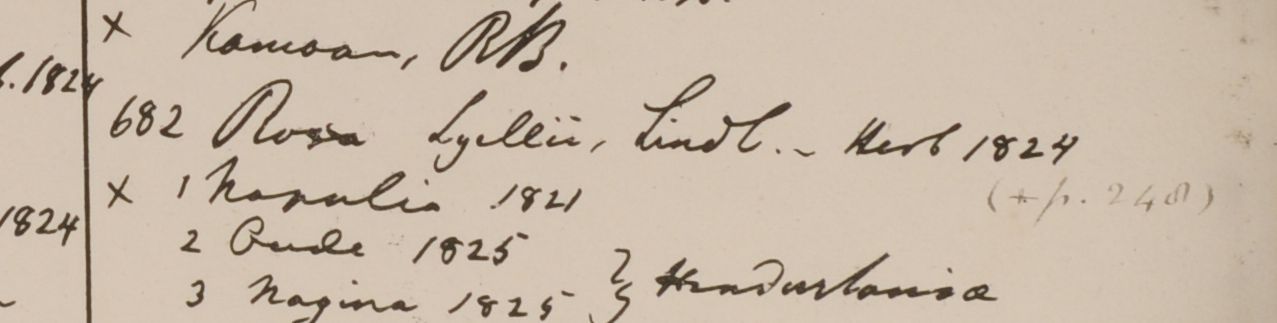 x Kamoan, RB.
. 1824
682 Rosa Lyellii, Lindl. - Herb 1824
x 1 Napalia 1821
(+ p. 248)
1824
2 Oude 1825
3 Nagina 1825 } Hindustaniae